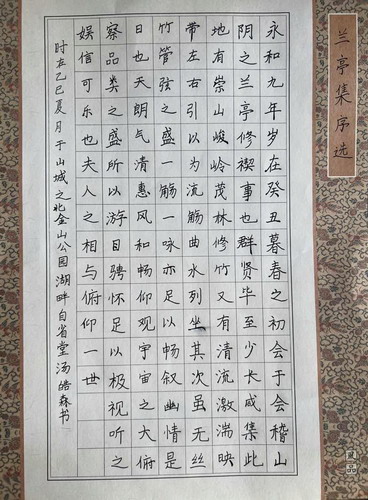 兰亭集序选
永和九年岁在癸丑暮春之初会于会稽山
阴之兰亭修禊事也群贤毕至少长咸集此
地有崇山峻岭茂林修竹又有清流激湍映
带左右引以为流觞曲水列坐其次虽无丝
竹管弦之盛一觞一咏亦足以畅叙幽情是
日也天朗气清惠风和畅仰观宇宙之大俯
察品类之盛所以游目骋怀足以极视听之
娱信可乐也夫人之相与俯仰一世
时在乙巳夏月于山城之北金山公园湖畔自省堂汤皓森书